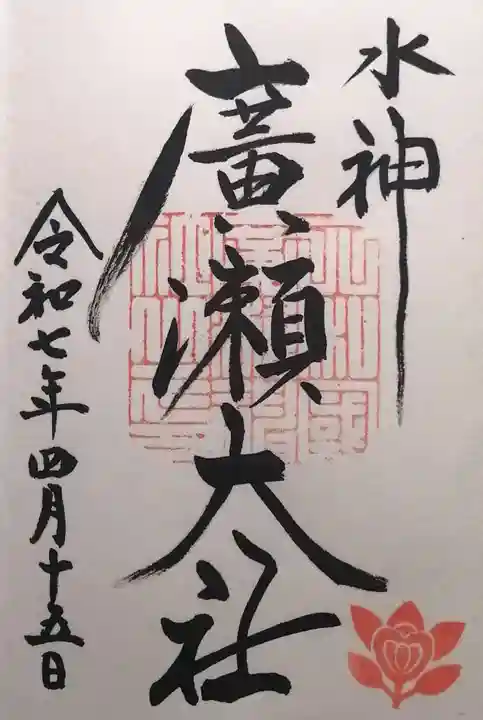 水神
廣瀬大社
令和七年四月十五日